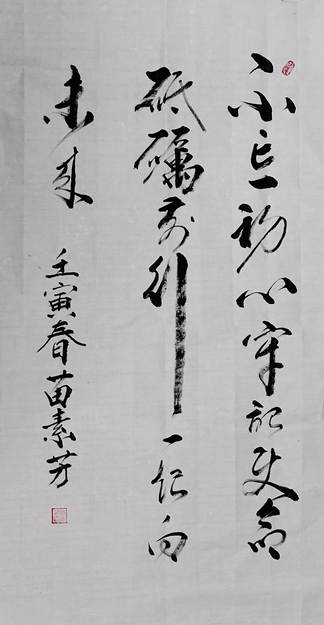 不忘初心牢记使命
砥礪前行一起向
未来
壬寅春苗素芳